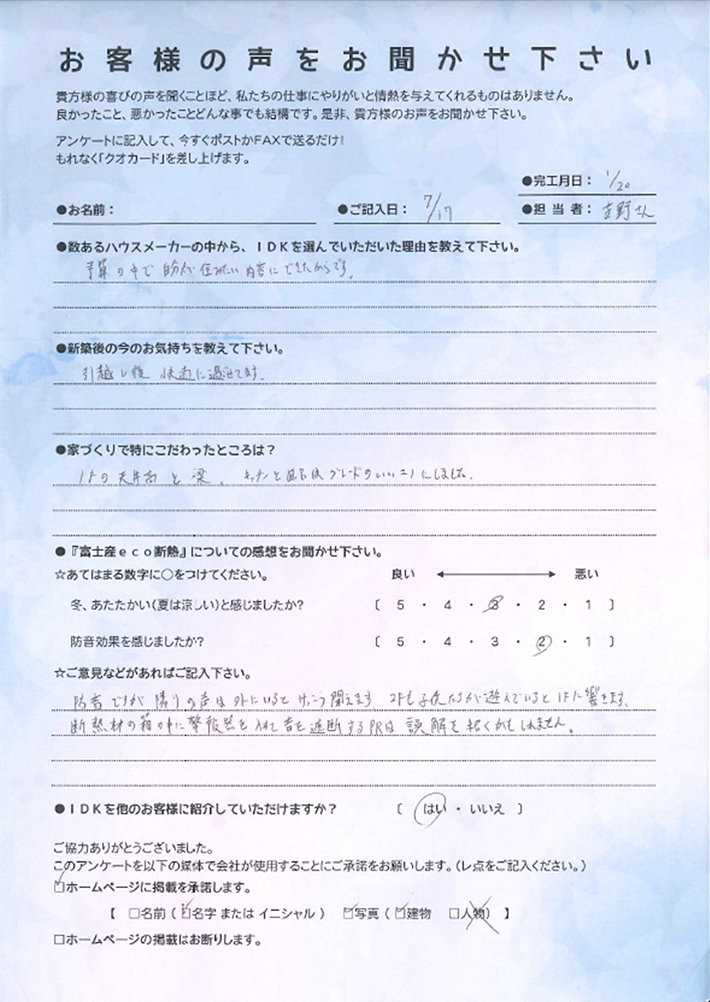 お客様の声をお聞かせ下さい
貴方様の喜びの声を聞くことほど、私たちの仕事にやりがいと情熱を与えてくれるものはありません。
良かったこと、悪かったことどんな事でも結構です。是非、貴方様のお声をお聞かせ下さい。
アンケートに記入して、今すぐポストかFAXで送るだけ!
もれなく「クオカード」を差し上げます。
●完工月日: 1/20
●お名前: ●ご記入日: 7/17 ●担当者: 吉野さん
●数あるハウスメーカーの中から、IDKを選んでいただいた理由を教えて下さい。
予算の中で自分が住みたい内容にできたからです。
●新築後の今のお気持ちを教えて下さい。
引越し後 快適に過せてます。
●家づくりで特にこだわったところは?
1Fの天井高と梁。キッチンと風呂はグレードのいいモノにしました。
●『富士産eco断熱』についての感想をお聞かせ下さい。
☆あてはまる数字に○をつけてください。 良い 悪い
冬、あたたかい(夏は涼しい)と感じましたか? 〔 5 ・ 4 ・ 3 ・ 2 ・ 1 〕
防音効果を感じましたか? 〔 5 ・ 4 ・ 3 ・ 2 ・ 1 〕
☆ご意見などがあればご記入下さい。
防音ですが 隣りの声は外にいると けっこう聞えます 2Fも子供たちが遊んでいると1Fに響きます。
断熱材の箱の中に警報器を入れて音を遮断するPRは 誤解を招くかもしれません。
●IDKを他のお客様に紹介していただけますか? 〔 はい ・ いいえ 〕
ご協力ありがとうございました。
このアンケートを以下の媒体で会社が使用することにご承諾をお願いします。(レ点をご記入ください。)
☑ホームページに掲載を承諾します。
【 □名前(☑名字 または イニシャル) ☑写真(☑建物 □人物) 】
□ホームページの掲載はお断りします。